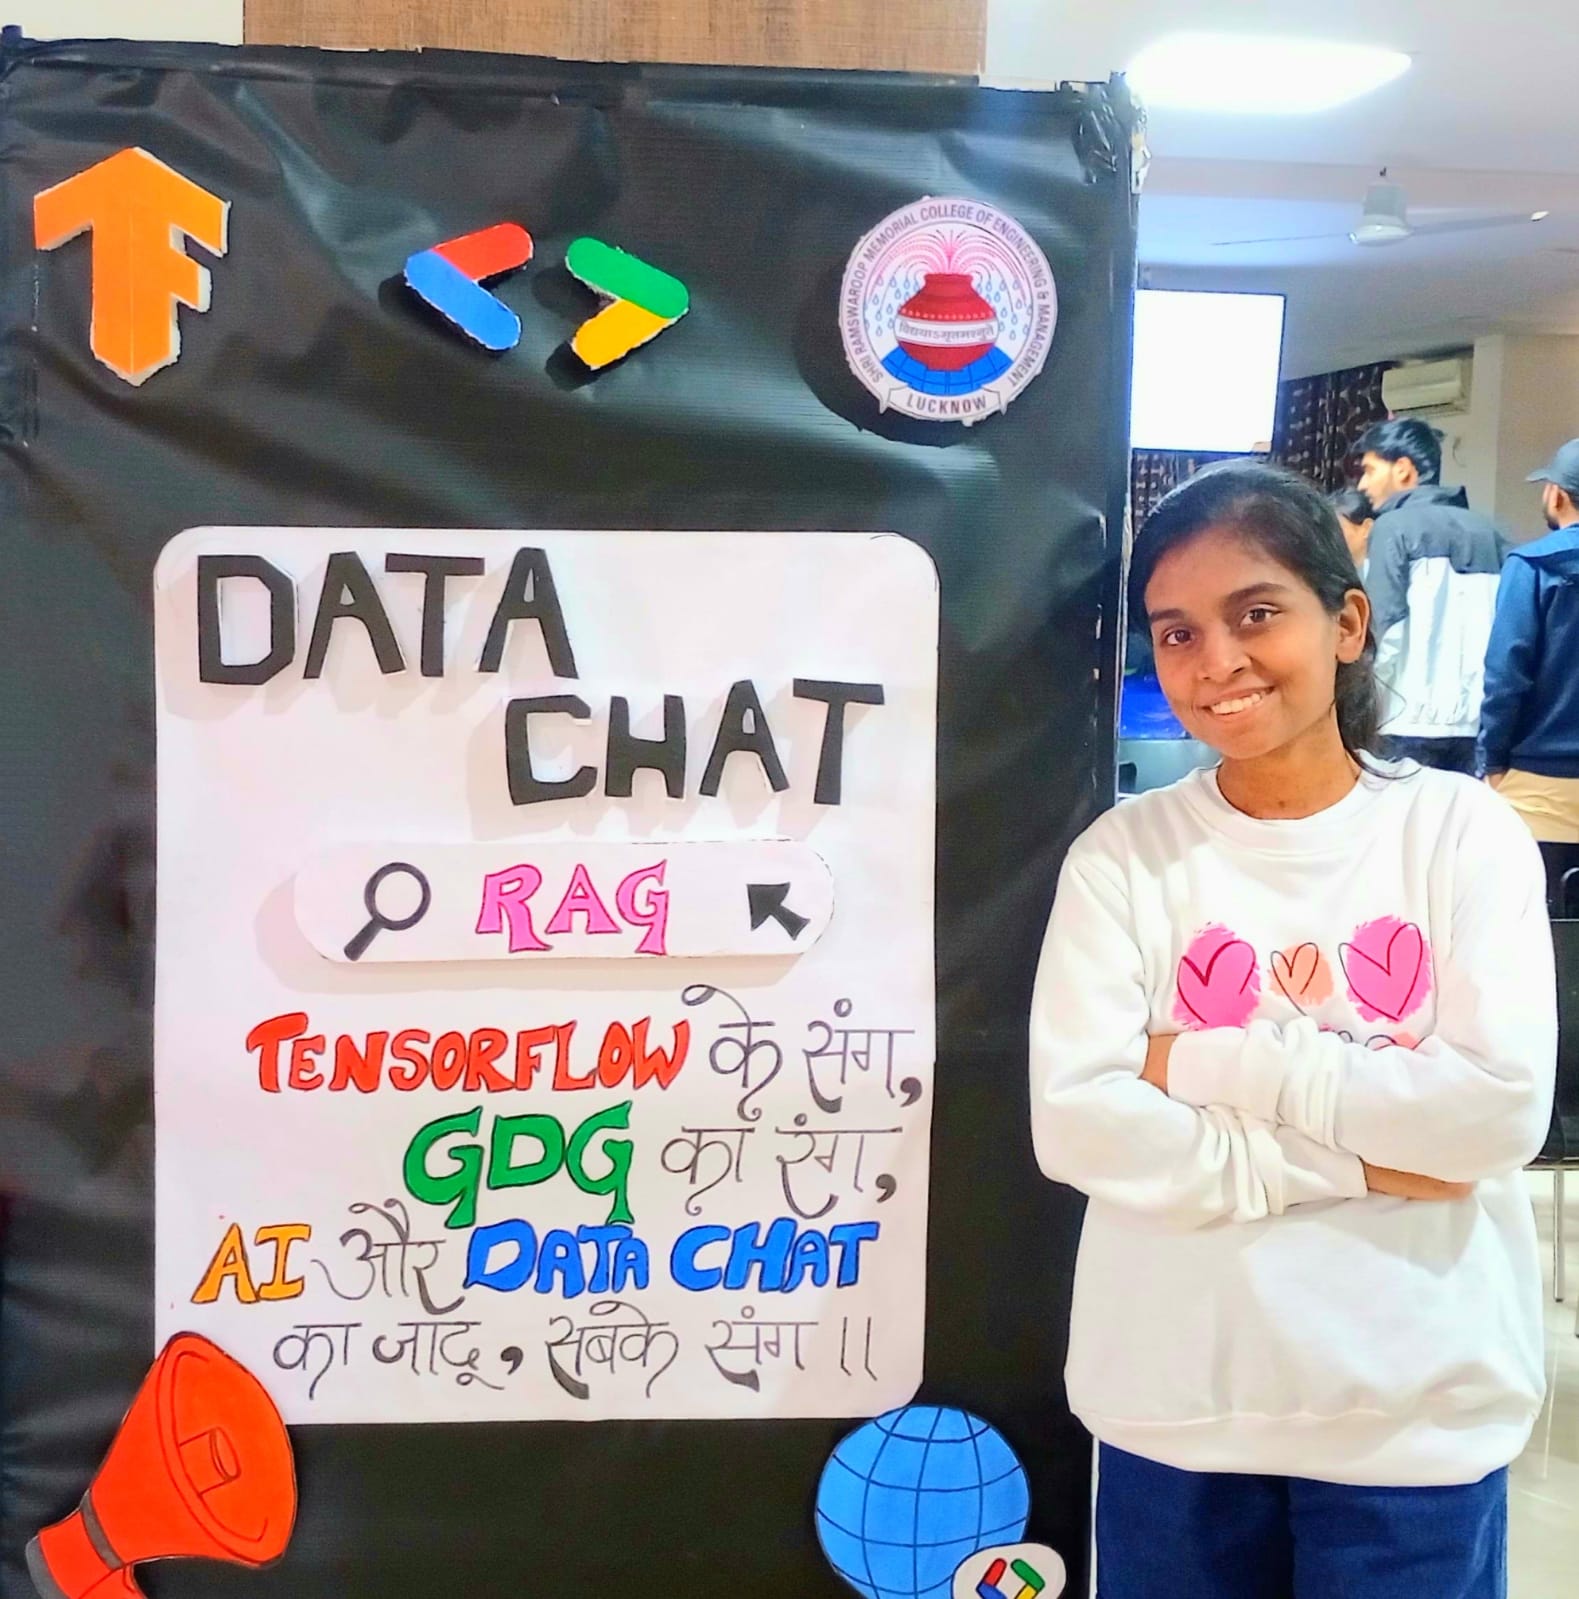 SHRI RAMSWAROOP MEMORIAL COLLEGE OF ENGINEERING & MANAGEMENT
विद्ययाऽमृतमश्नुते
LUCKNOW
DATA
CHAT
RAG
TENSORFLOW के संग,
GDG का रंग,
AI और DATA CHAT
का जादू, सबके संग ||